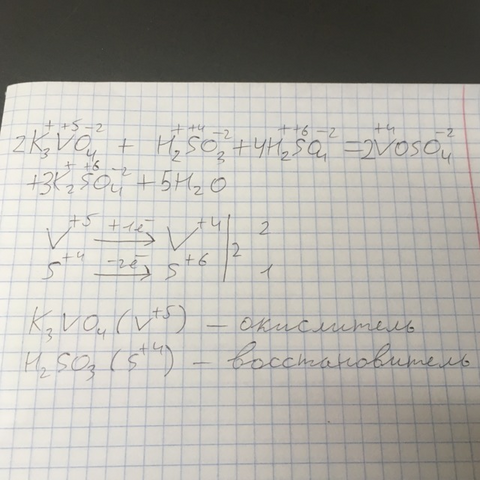 2K₃⁺V⁺⁵O₄⁻² + H₂⁺S⁺⁴O₃⁻² + 4H₂⁺S⁺⁶O₄⁻² = 2V⁺⁴OSO₄⁻²
+ 3K₂⁺S⁺⁶O₄⁻² + 5H₂O
V⁺⁵ +1e⁻→ V⁺⁴ | 2 | 2
S⁺⁴ -2e⁻→ S⁺⁶ | 1
K₃VO₄ (V⁺⁵) – окислитель
H₂SO₃ (S⁺⁴) – восстановитель